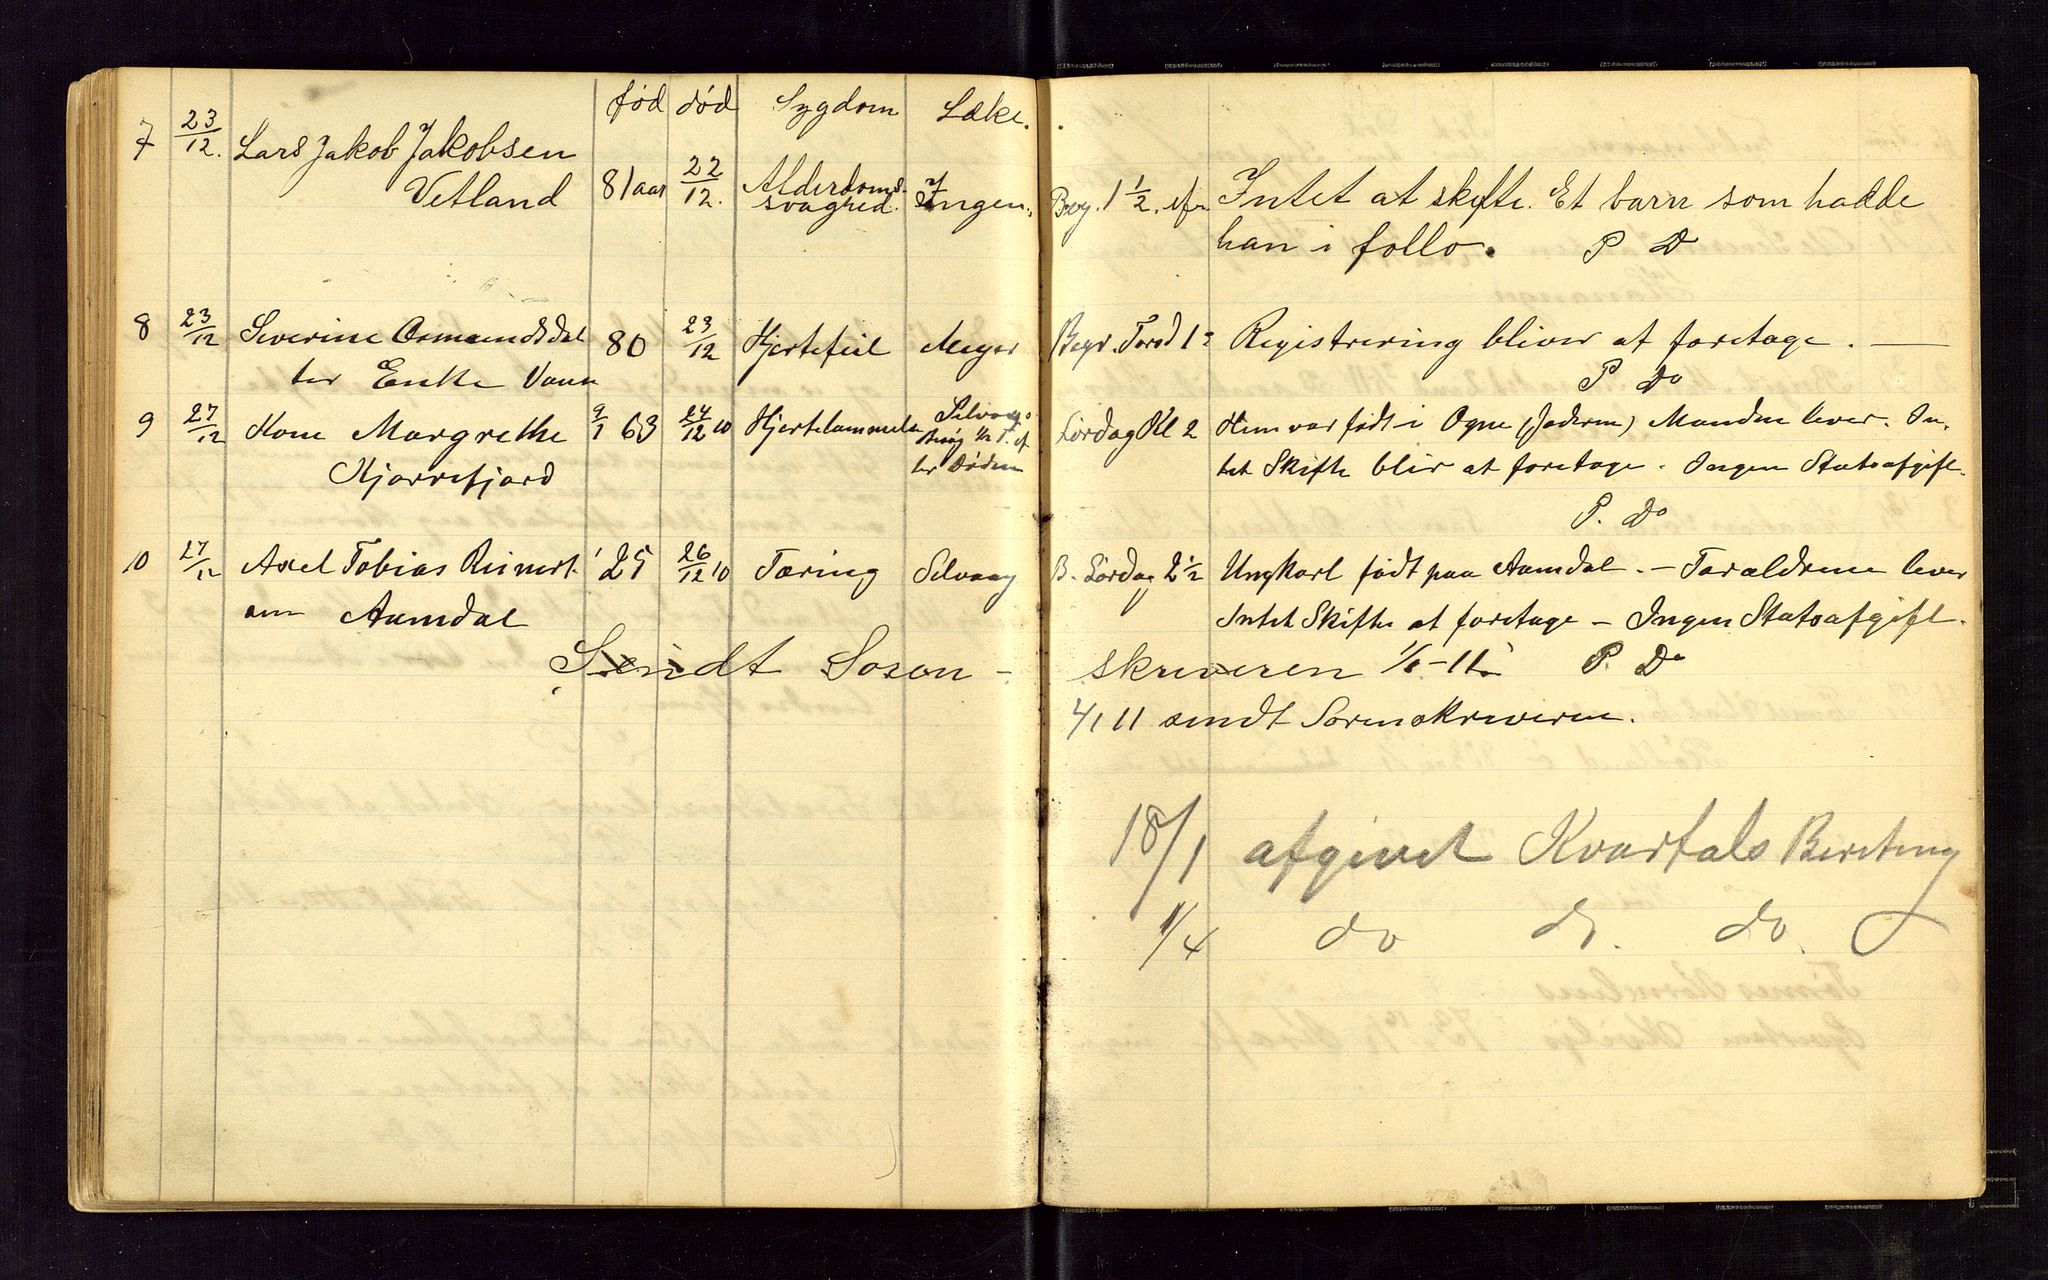 fød død Sygdom Læke.
7 23/12. Lars Jakob Jakobsen
Vetland 81 aar 22/12. Alderdoms-
svaghed. Ingen. 1 1/2. Intet at skifte. Et barn som hadde
han i follo. P D
8 23/12 Severine Osmundsdat
ter Enke Vann 80 23/12 Hjertefeil Meyer Begr. Torsd 1 Registrering bliver at foretage. —
P Do
9 27/12 Kone Margrethe 9/1 63 24/12 10 Hjertelammelse Selvaag Lørdag Kl 2 Hun var født i Ogne (Jæderen) Manden lever. In-
Kjørrefjord ter Døden tet Skifte blir at foretage. Ingen Statsafgift.
P. Do
10 27/12 Axel Tobias Reinert 25 26/12 10 Tæring Selvaag B. Lørdag 2 1/2 Ungkarl født paa Aamdal. — Forældrene lever
Aamdal Intet Skifte at foretage — Ingen Statsafgift.
Sendt Soren-
skriveren 1/1-11 P. Do
4/1 11 sendt Sorenskriveren.
18/1 afgivet Kvartals Beretning
1/4 do do. do.